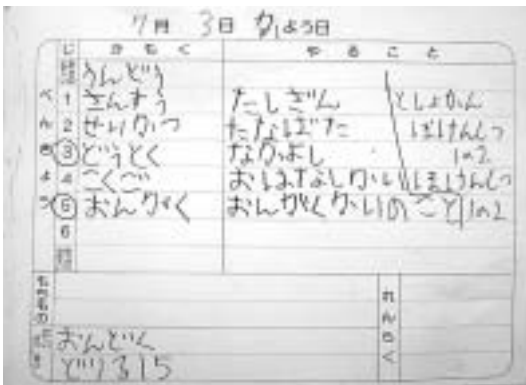 7月 3日 かようび
じかん かもく やること
うんどう
べんきょう
1 さんすう たしざん としょかん
2 せいかつ たなばた ほけんしつ
③ どうとく なかよし 1の2
4 こくご おはなしかい ほけんしつ
⑤ おんがく おんがくかいのこと 1の2
6
もちもの
れんらく
おんどく
どり315